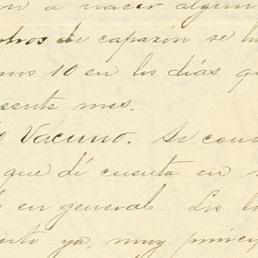 á nacer algun
de caparrón se h
mos 10 en los días q
esente mes.
o Vacuno. Se con
que dí cuenta en
en general. Los
ya, muy princip